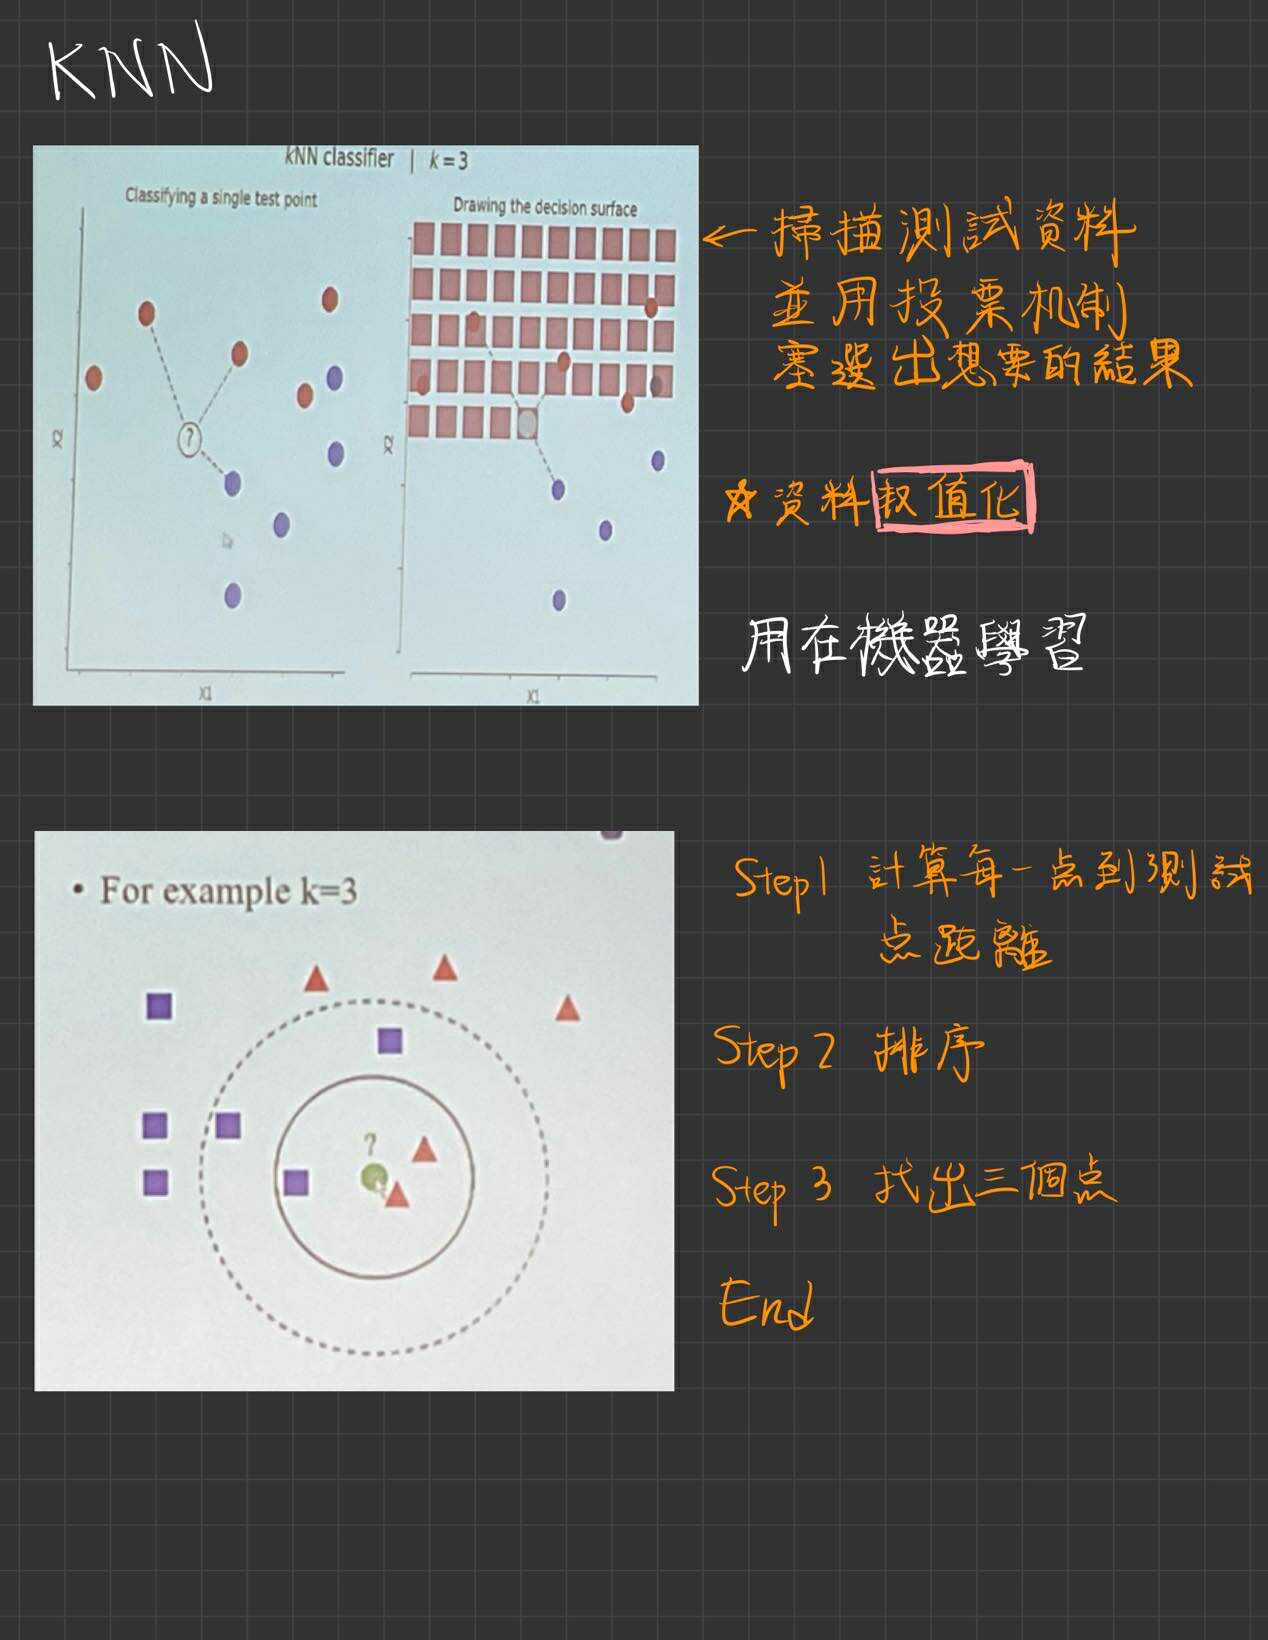 KNN
kNN classifier | k = 3
Classifying a single test point
Drawing the decision surface
X2
?
X1
X2
X1
← 掃描測試資料
並用投票机制
塞選出想要的結果
☆資料
值化
用在機器學習
• For example k=3
?
Step1 計算每一点到測試
点距離
Step 2 排序
Step 3 找出三個点
End